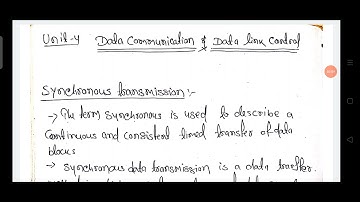 Unit-4 Data Communication & Data link Control
Synchronous transmission :-
→ The term synchronous is used to describe a
Continuous and consistent timed transfer of data
blocks
→ synchronous data transmission is a data tracffer